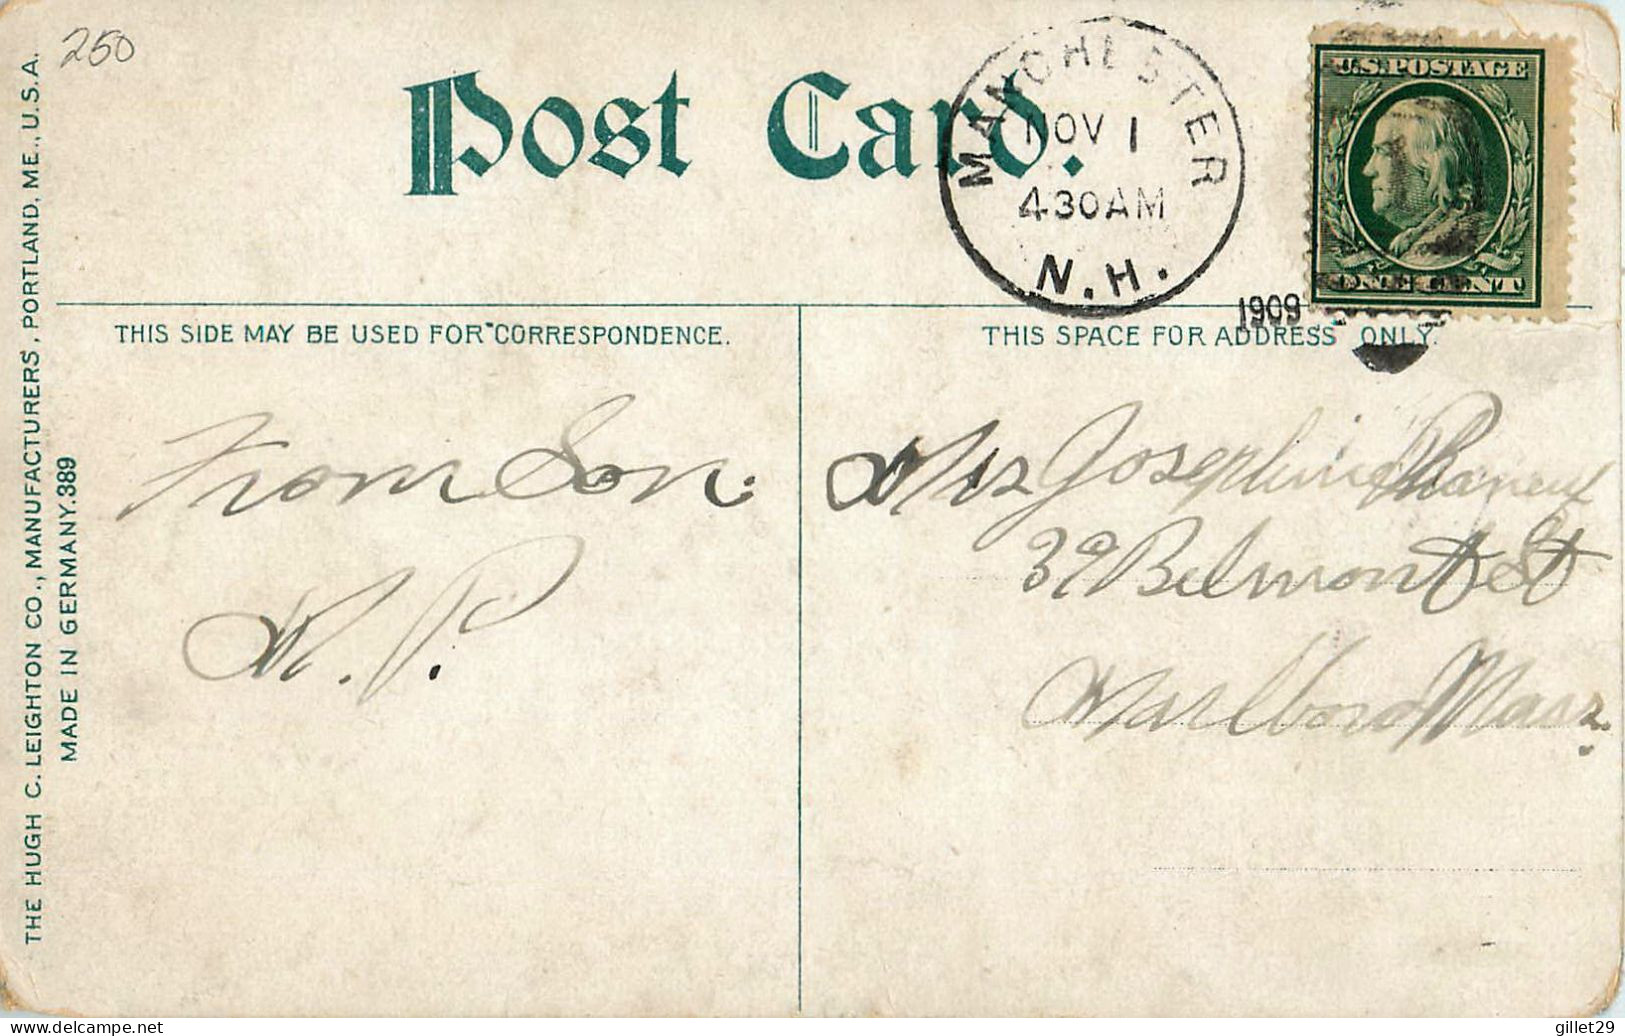 250
Post Card.
MANCHESTER
NOV 1
430AM
N.H.
1909
U.S. POSTAGE
ONE CENT
THIS SIDE MAY BE USED FOR CORRESPONDENCE.
THIS SPACE FOR ADDRESS ONLY.
From Son.
N. P.
Mrs Josephine
39 Belmont St
Marlboro Mass.
THE HUGH C. LEIGHTON CO., MANUFACTURERS, PORTLAND, ME., U.S.A.
MADE IN GERMANY. 389
delcampe.net
gillet29